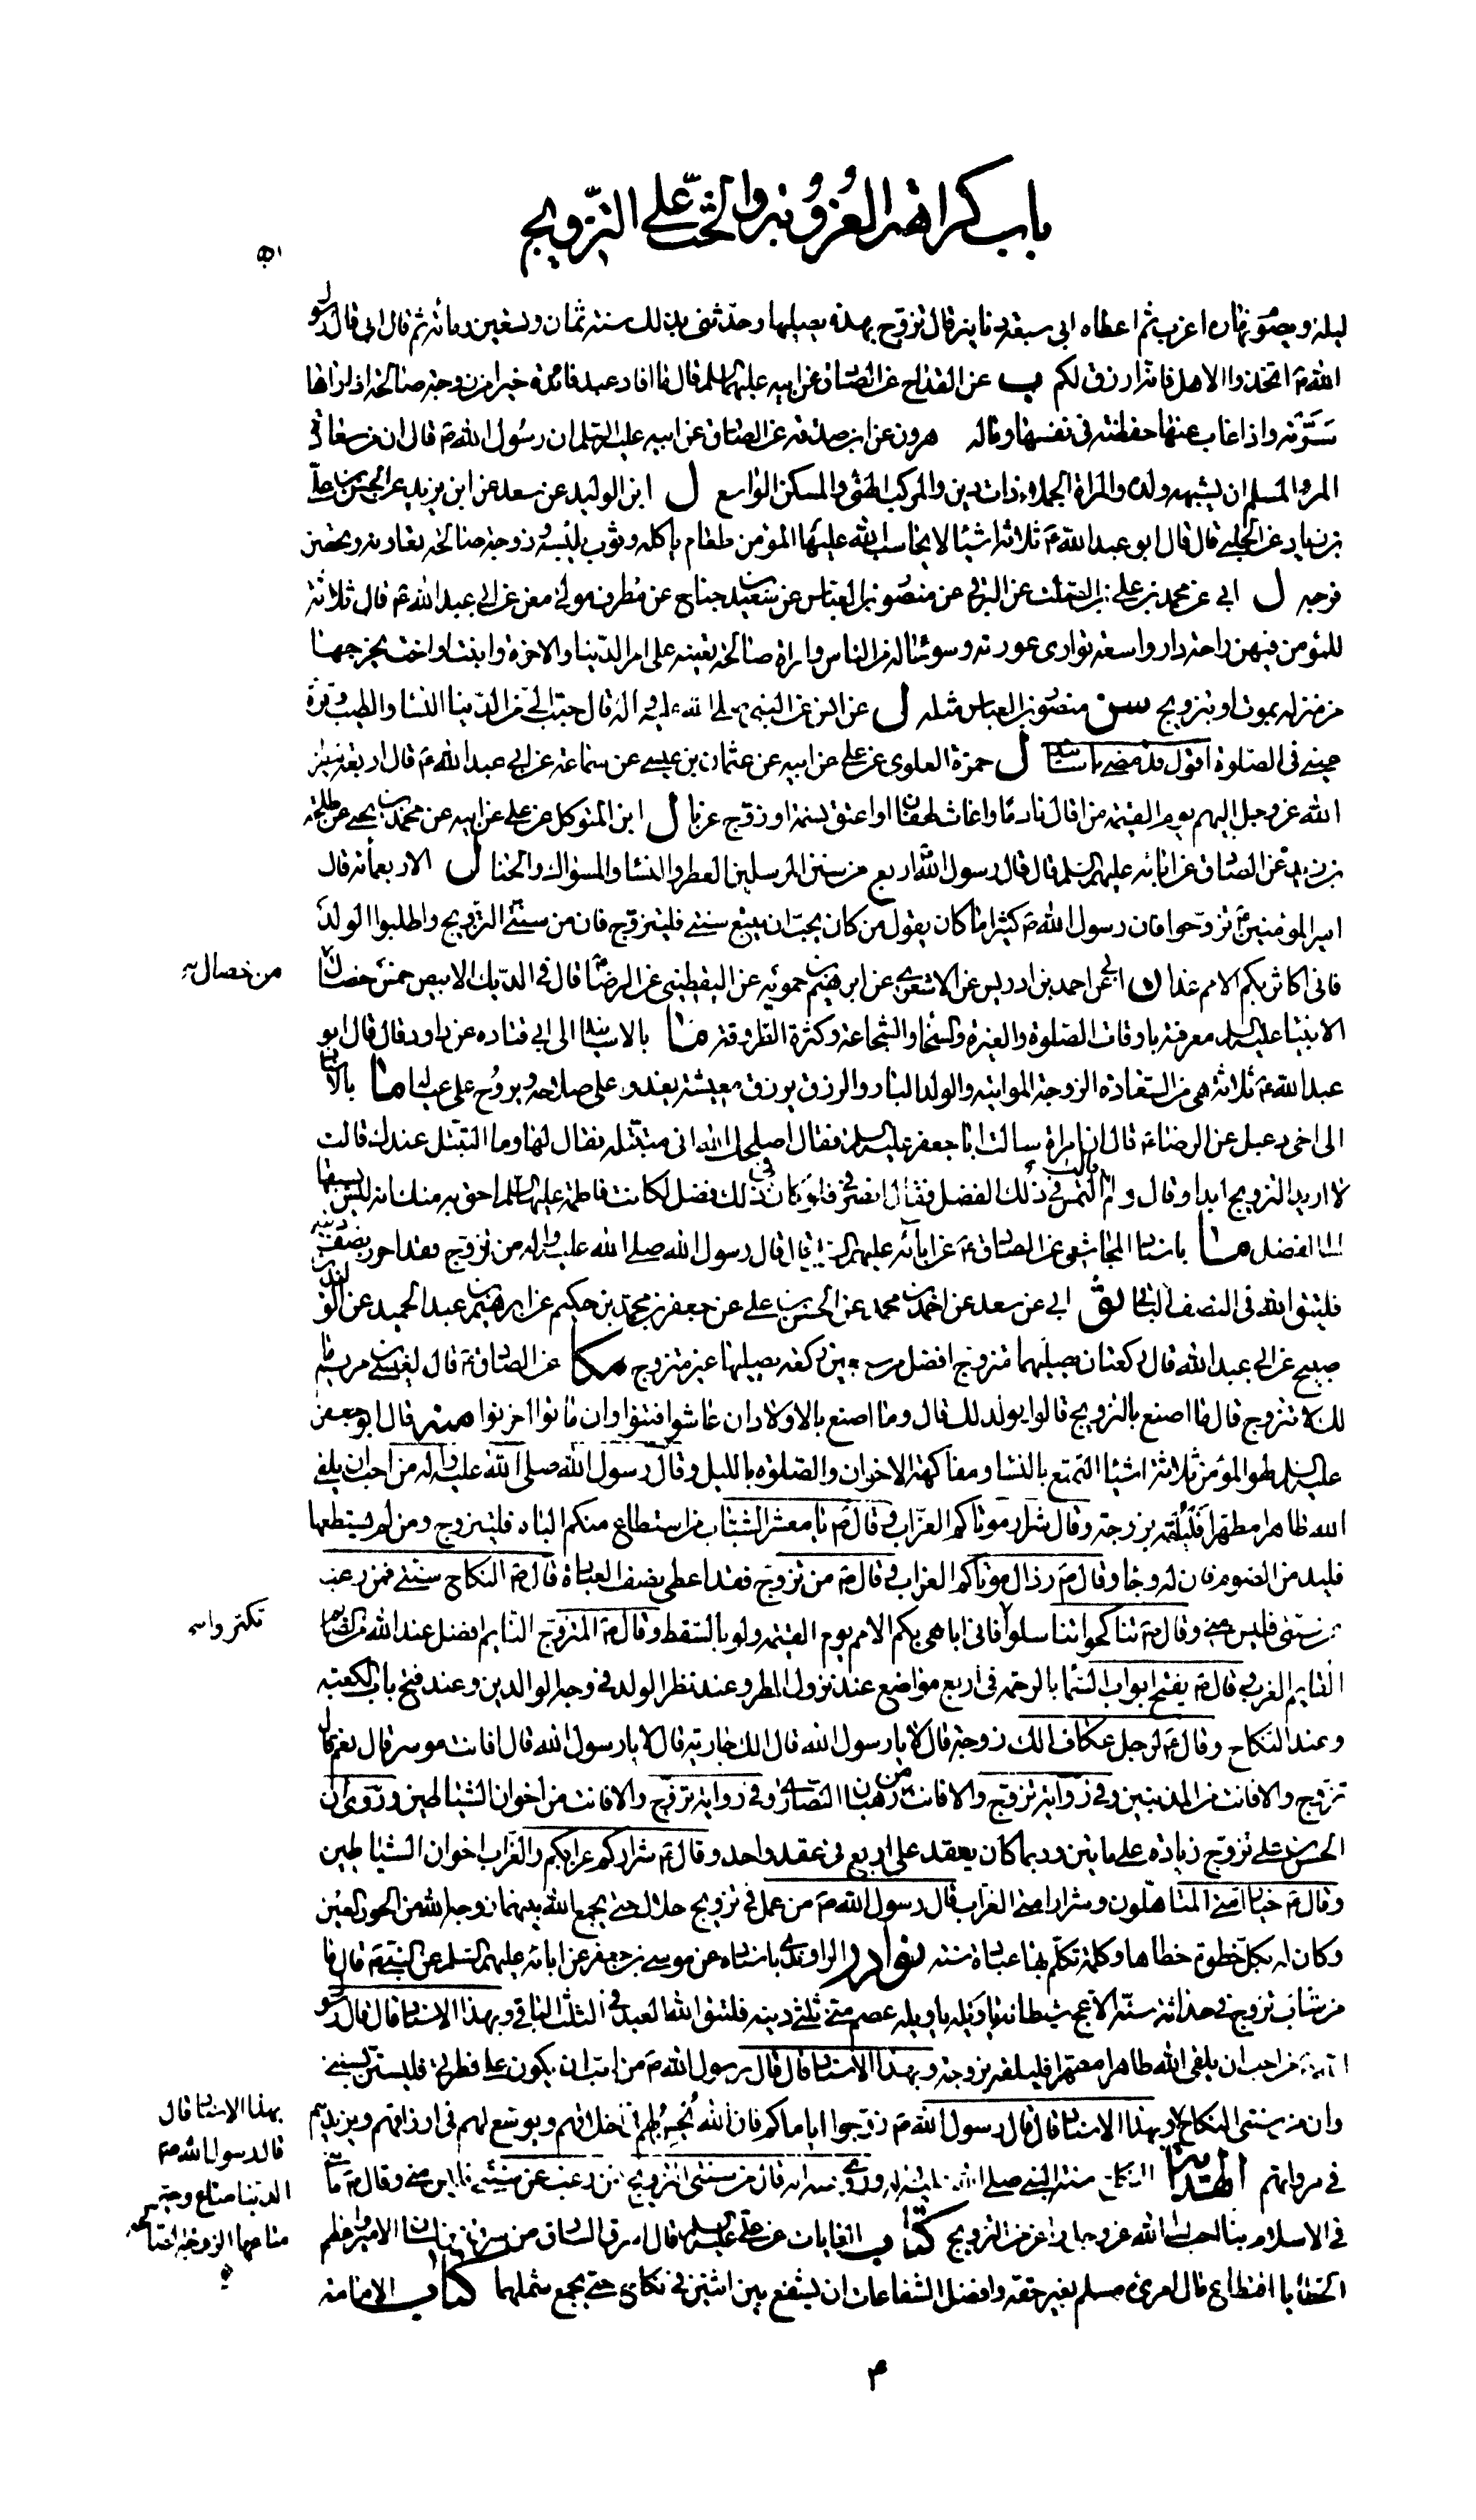 باب كراهة العزوبة والحث على التزويج
ليلة ويصوم نهاره اعزب ثم اعطاه ابي سبعة دنانير قال تزوج بهذه وحدثني بذلك سنة ثمان وتسعين ومائة ثم قال ابي قال رسو
الله ص اتخذوا الاهل فانه ارزق لكم ب عن القداح عن الصادق عن ابيه عليهما السلم قال ما افاد عبد فائدة خيرا من زوجة صالحة اذا راها
سرته واذا غاب عنها حفظته في نفسها وماله هرون عن ابن صدقة عن الصادق عن ابيه عليه السلم ان رسول الله ص قال ان من سعادة
المرء المسلم ان يشبهه ولده والمراة الجملاء ذات دين والمركب الهنى والمسكن الواسع ل ابن الوليد عن سعد عن ابن يزيد عن الحسن بن على
بن زياد عن الحلبي قال قال ابو عبد الله ع ثلاثة اشيا لا يحاسب الله عليها المؤمن طعام ياكله وثوب يلبسه وزوجة صالحة تعاونه ويحصن
فرجه ل ابي عن محمد بن علي بن الصلت عن البرقي عن منصور بن العباس عن سعيد بن جناح عن مطرف مولى معن عن ابي عبد الله ع قال ثلاثة
للمؤمن فيهن راحة دار واسعة توارى عورته وسوء حاله من الناس وامراة صالحة تعينه على امر الدنيا والاخرة وابنة او اخت يخرجها
من منزله بموت او بتزويج سن منصور بن العباس مثله ل عن انس عن النبي صلى الله عليه واله قال حبب الي من الدنيا النسا والطيب وقرة
عيني في الصلوة اقول قد مضى باسناد ل حمزة العلوي عن علي عن ابيه عن عثمان بن عيسى عن سماعة عن ابي عبد الله ع قال اربعة ينظر
الله عز وجل اليهم يوم القيمة من اقال نادما او اغاث لهفان او اعتق نسمة او زوج عزبا ل ابن المتوكل عن علي عن ابيه عن محمد بن يحيى عن طلحة
بن زيد عن الصادق عن ابائه عليهم السلم قال قال رسول الله اربع من سنن المرسلين العطر والنسا والسواك والحنا ل الاربعمأئة قال
امير المؤمنين ع تزوجوا فان رسول الله ص كثيرا ما كان يقول من كان يحب ان يتبع سنتي فليتزوج فان من سنتي التزويج واطلبوا الولد
فاني اكاثر بكم الامم غدا ن ابي عن احمد بن ادريس عن الاشعري عن ابرهيم بن حمويه عن اليقطيني عن الرضا قال في الديك الابيض خمس خصال
من خصال
الانبيا عليهم السلم معرفته باوقات الصلوة والغيرة والسخا والشجاعة وكثرة الطروقة ما بالاسناد الى ابي قتاده عن داود قال قال ابو
عبد الله ع ثلاثة هن من السعادة الزوجة المواتية والولد البار والرزق يرزق معيشة يغدو على صلاحه ويروح على عياله ما بالاسناد
الى اخي دعبل عن الرضا ع قال ان امراة سالت ابا جعفر عليه السلم فقال اصلحك الله اني متبتلة فقال لها وما التبتل عندك قالت
لا اريد التزويج ابدا وقال ولم قالت التمس في ذلك الفضل فقال انصرفي فلو كان في ذلك فضل لكانت فاطمة عليها السلم احق به منك انه ليس يسبقها
الى الفضل ما باسناد المجاشعي عن الصادق ع عن ابائه عليهم السلم قال قال رسول الله صلى الله عليه واله من تزوج فقد احرز نصف دينه
فليتق الله في النصف الباقي ثو ابي عن سعد عن احمد بن محمد عن الحسن بن علي عن جعفر بن محمد بن حكيم عن ابرهيم بن عبد الحميد عن الوليد بن
صبيح عن ابي عبد الله قال ركعتان يصليهما متزوج افضل من سبعين ركعة يصليها غير متزوج مكا عن الصادق ع قال لعيسى بن مريم ما
لك لا تتزوج قال ما اصنع بالتزويج قالوا يولد لك قال وما اصنع بالاولاد ان عاشوا فتنوا وان ماتوا احزنوا منه قال ابو جعفر
عليه السلم لهو المؤمن ثلاثة اشيا التمتع بالنسا ومفاكهة الاخوان والصلوة بالليل وقال رسول الله صلى الله عليه واله من احب ان يلقى
الله طاهرا مطهرا فليلقه بزوجة وقال شرار موتاكم العزاب وقال ص يا معشر الشباب من استطاع منكم الباه فليتزوج ومن لم يستطعها
فليدمن الصوم فان له وجا وقال ص رذال موتاكم العزاب وقال ص من تزوج فقد اعطى نصف العبادة قال ص النكاح سنتي فمن رغب
عن سنتي فليس مني وقال ص تناكحوا تناسلوا فاني اباهي بكم الامم يوم القيمة ولو بالسقط وقال ص المتزوج النائم افضل عند الله من الصائم
تكثروا
القايم العزب قال ص يفتح ابواب السما بالرحمة في اربع مواضع عند نزول المطر وعند نظر الولد في وجه الوالدين وعند فتح باب الكعبة
وعند النكاح وقال ص لرجل عكاف الك زوجة قال لا يا رسول الله قال الك جارية قال لا يا رسول الله قال افانت موسر قال نعم قال
تزوج والا فانت من المذنبين وفي رواية تزوج والا فانت من رهبان النصارى وفي رواية تزوج والا فانت من اخوان الشياطين وروى ان
الحسن بن علي تزوج زيادة على مايتين وربما كان يعقد على اربع في عقد واحد وقال ع شراركم عزابكم والعزاب اخوان الشياطين
وقال ع خيار امتي المتاهلون وشرار امتي العزاب قال رسول الله ص من عمل في تزويج حلال حتى يجمع الله بينهما زوجه الله من الحور العين
وكان له بكل خطوة خطاها وكلمة تكلم بها عبادة سنة نوادر الراوندي باسناده عن موسى بن جعفر عن ابائه عليهم السلم عن النبي ص قال ما
من شاب تزوج في حداثة سنه الا عج شيطانه يا ويله يا ويله عصم مني ثلثي دينه فليتق الله العبد في الثلث الباقي وبهذا الاسناد قال قال رسو
الله ص من احب ان يلقى الله طاهرا مطهرا فليلقه بزوجة وبهذا الاسناد قال قال رسول الله ص من احب ان يكون على فطرتي فليستن بسنتي
وان من سنتي النكاح وبهذا الاسناد قال قال رسول الله ص زوجوا اياماكم فان الله يحسن لهم في اخلاقهم ويوسع لهم في ارزاقهم ويزيدهم
بهذا الاسناد قال
قال رسول الله ص
الدنيا متاع وخير
متاعها الزوجة الصالحة
في مرواتهم الهداية النكاح سنة النبي صلى الله عليه واله وروي انه قال من سنتي التزويج فمن رغب عن سنتي فليس مني وقال ص ما بني
في الاسلام بنا احب الى الله عز وجل واعز من التزويج كتاب الغايات عن علي عليه السلم قال اسرق السراق من سرق لسان الامير واعظم
الخطايا اقتطاع مال امرئ مسلم بغير حقه وافضل الشفاعات ان يشفع بين اثنين في نكاح حتى يجمع شملهما كتاب الامامة
٣